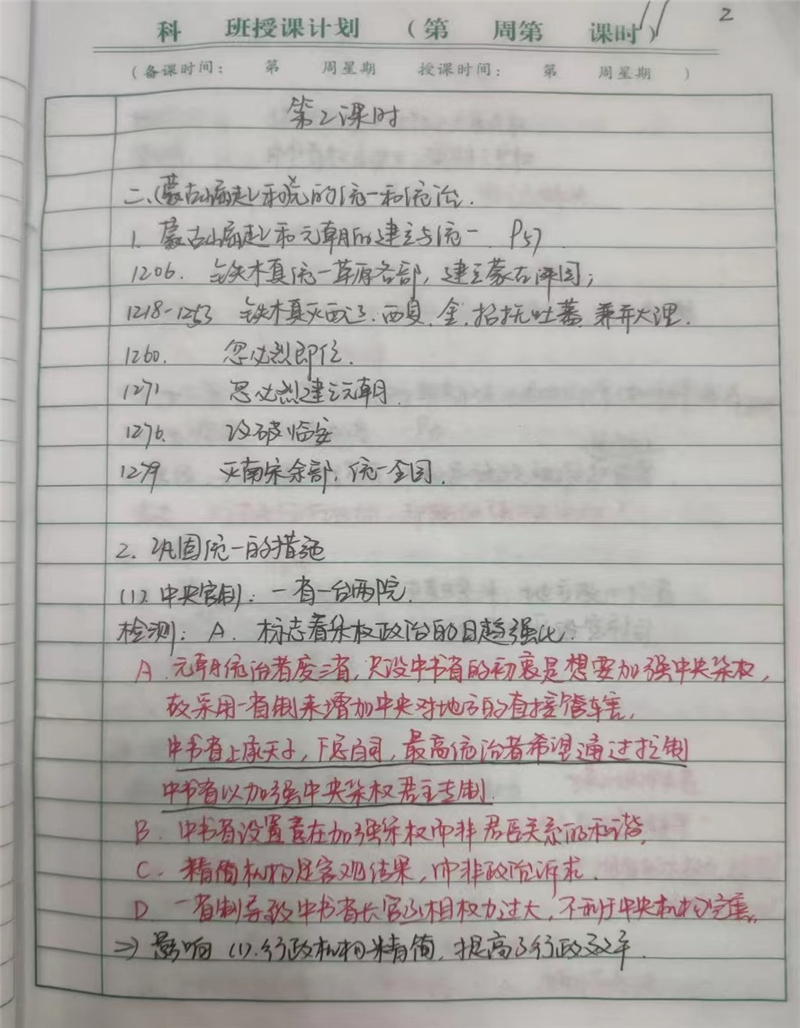 2
科 班授课计划 (第 周第 课时)
(备课时间: 第 周星期 授课时间: 第 周星期 )
第2课时
二、(蒙古崛起)和元的统一和统治.
1. 蒙古崛起和元朝的建立与统一. P57
1206. 铁木真统一草原各部, 建立蒙古汗国;
1218-1253 铁木真灭西辽. 西夏. 金. 招抚吐蕃. 兼并大理.
1260. 忽必烈即位.
1271 忽必烈建立元朝.
1276. 攻破临安
1279 灭南宋余部, 统一全国.
2. 巩固统一的措施
(1). 中央官制: 一省一台两院.
检测: A. 标志着集权政治的日趋强化.
A. 元朝统治者废三省, 只设中书省的初衷是想要加强中央集权,
故采用一省制来增加中央对地方的直接管辖.
中书省上承天子, 下总百司, 最高统治者希望通过控制
中书省以加强中央集权君主专制.
B. 中书省设置意在加强集权而非君臣关系的和谐.
C. 精简机构是客观结果, 而非政治诉求.
D 一省制导致中书省长官丞相权力过大, 不利于中央机构完善.
⇒ 影响 (1). 行政机构精简, 提高了行政效率.